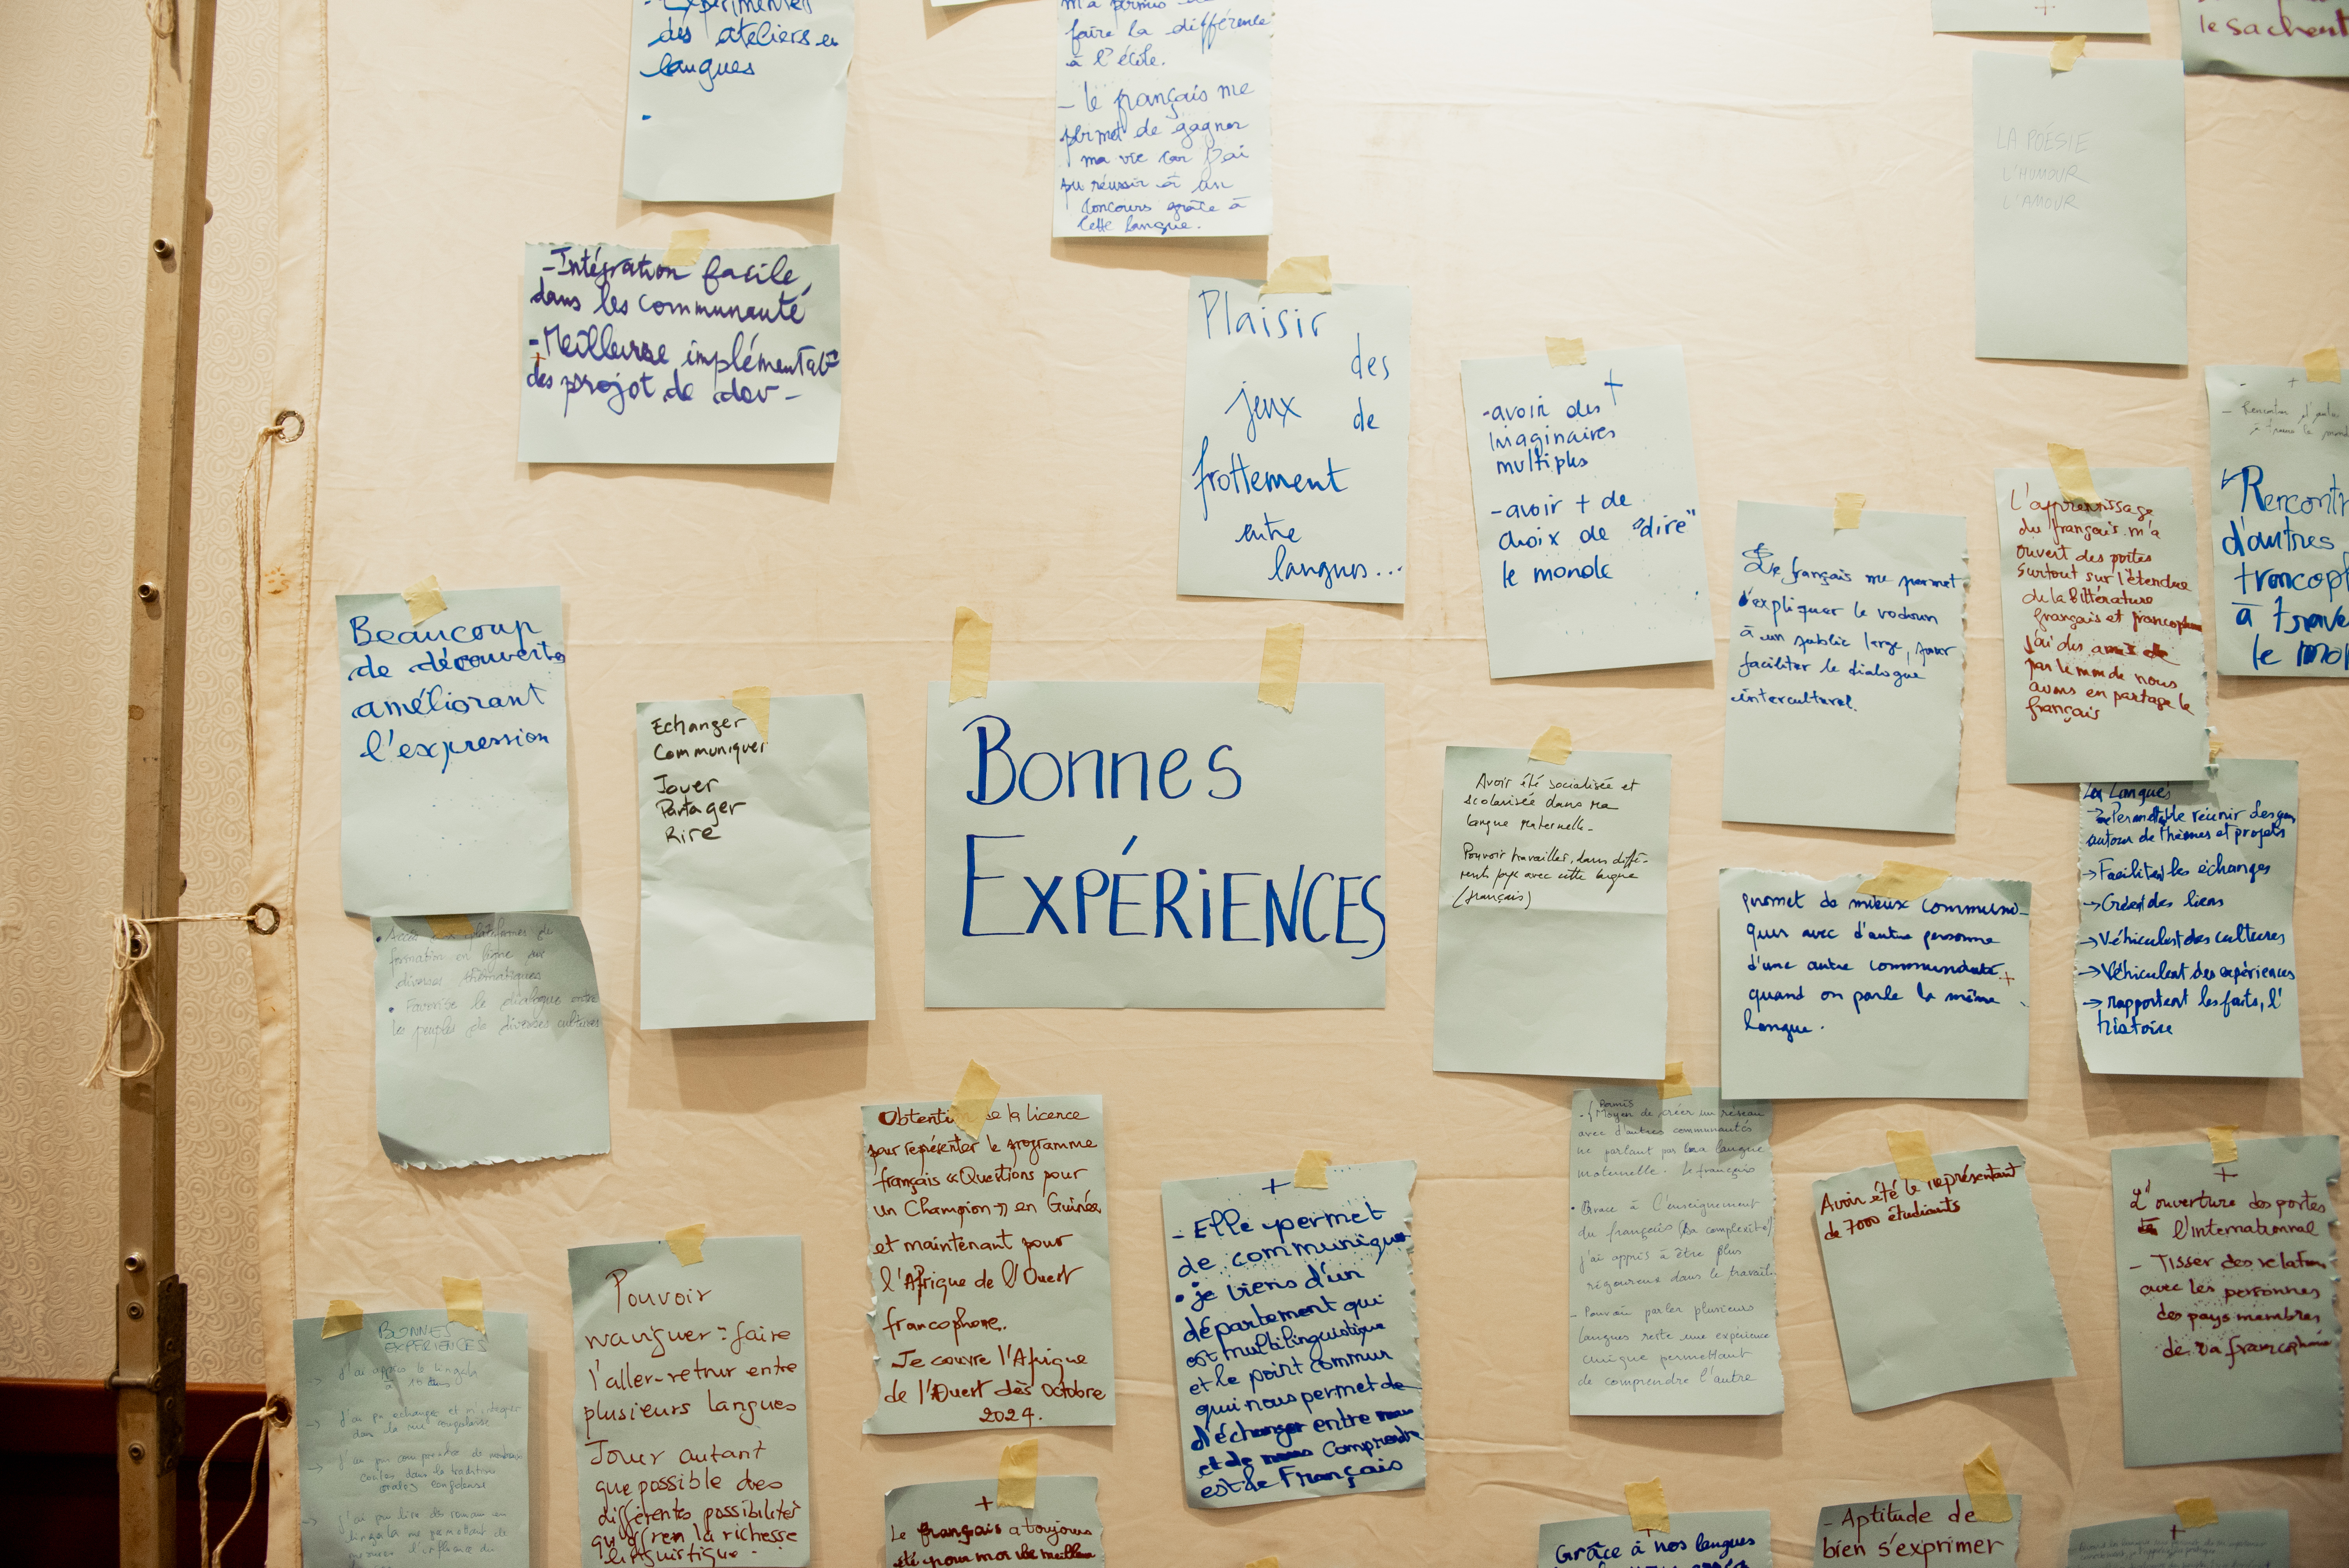 des ateliers en
langues
faire la différence
à l'école.
- le français me
permet de gagner
ma vie car j'ai
pu réussir à un
concours grâce à
cette langue.
+
le sachent
LA POÉSIE
L'HUMOUR
L'AMOUR
- Intégration facile
dans les communauté
- Meilleure
des projet de dev-
Plaisir
des
jeux
de
frottement
entre
langues...
+
- avoir des
imaginaires
multiples
- avoir + de
choix de "dire"
le monde
Le français me permet
d'expliquer le vodoun
à un public large, pour
faciliter le dialogue
interculturel.
L'apprentissage
du français m'a
ouvert des portes
surtout sur l'étendue
de la littérature
français et
j'ai des amis
par le monde nous
avons en partage le
français
- +
d'autres
à
le
Beaucoup
de découvertes
améliorant
l'expression
Echanger
Communiquer
Jouer
Partager
Rire
BONNES
EXPÉRIENCES
Avoir été socialisée et
scolarisée dans ma
langue maternelle.
Pouvoir travailler dans diffé-
rents pays avec cette langue
(français)
permet de mieux communi-
quer avec d'autre personne
d'une autre communauté +
quand on parle la même
langue.
Les Langues
réunir des gens
autour de thèmes et projets
→ Facilitent les échanges
→ Créent des liens
→ Véhiculent des cultures
→ Véhiculent des expériences
→ rapportent les faits, l'
histoire
plateformes de
formation en ligne sur
diverses thématiques
• Favorise le dialogue entre
les peuples de diverses cultures
Obtention de la licence
pour représenter le programme
français «Questions pour
un Champion» en Guinée
et maintenant pour
l'Afrique de l'Ouest
francophone.
Je couvre l'Afrique
de l'Ouest dès Octobre
2024.
+
- Elle permet
de communiquer
• je viens d'un
département qui
est multilinguistique
et le point commun
qui nous permet de
d'échanger entre
et de comprendre
est le Français
Permis
Moyen de créer un réseau
avec d'autres communautés
ne parlant pas la langue
maternelle. Le français
• Grace à l'enseignement
du français (sa complexité)
j'ai appris à être plus
rigoureux dans le travail.
- Pouvoir parler plusieurs
langues reste une expérience
unique permettant
de comprendre l'autre
Avoir été le représentant
de 7000 étudiants
+
L'ouverture des portes
l'internationnal
- Tisser des relations
avec les personnes
des pays membres
de la
BONNES
EXPÉRIENCES
→ J'ai appris le lingala
Pouvoir
naviguer : faire
l'aller-retour entre
plusieurs langues
Jouer autant
que possible des
différentes possibilités
qu'offren la richesse
linguistique.
+
Le français a toujours
été pour moi
Grâce à nos langues
- Aptitude de
bien s'exprimer
+